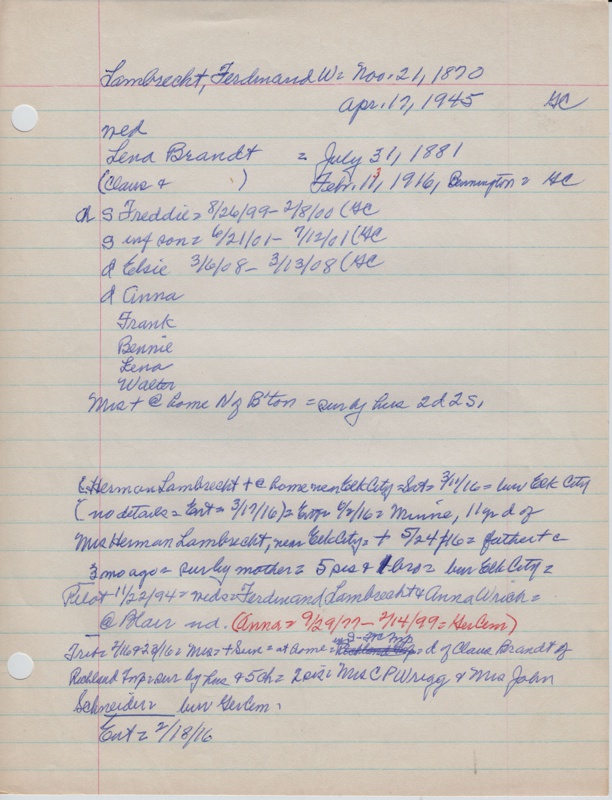 Lambrecht, Ferdinand W = Nov. 21, 1870
Apr. 17, 1945 GC
wed
Lena Brandt = July 31, 1881
(Claus & ) Feb. 11, 3 1916, Bennington = GC
ch S Freddie = 8/26/99 - 2/8/00 (GC
S inf son = 6/21/01 - 7/12/01 (GC
d Elsie 3/6/08 - 3/13/08 (GC
d Anna
Frank
Bennie
Lena
Walter
Mrs + @ home N of B'ton = sur by hus 2d 2s,
Herman Lambrecht + @ home near Elk City = Sat = 3/11/16 = bur Elk City
(no details = Ent = 3/17/16) = 6/2/16 = Minnie, 11 yr d of
Mrs Herman Lambrecht, near Elk City = + 5/24/16 = father + @
3 mo ago = sur by mother = 5 sis & 1 bro = bur Elk City =
Pilot 11/22/94 = weds = Ferdinand Lambrecht & Anna Wrich =
@ Blair nd. (Anna = 9/29/77 - 2/14/99 = GerCem)
Trib = 2/16 & 23/16 = Mrs + Sun = at home = = d of Claus Brandt of
Richland Twp = sur by hus & 5 ch = 2 sis = Mrs C P Wrigg & Mrs John
Schneider = bur GerCem.
Ent = 2/18/16